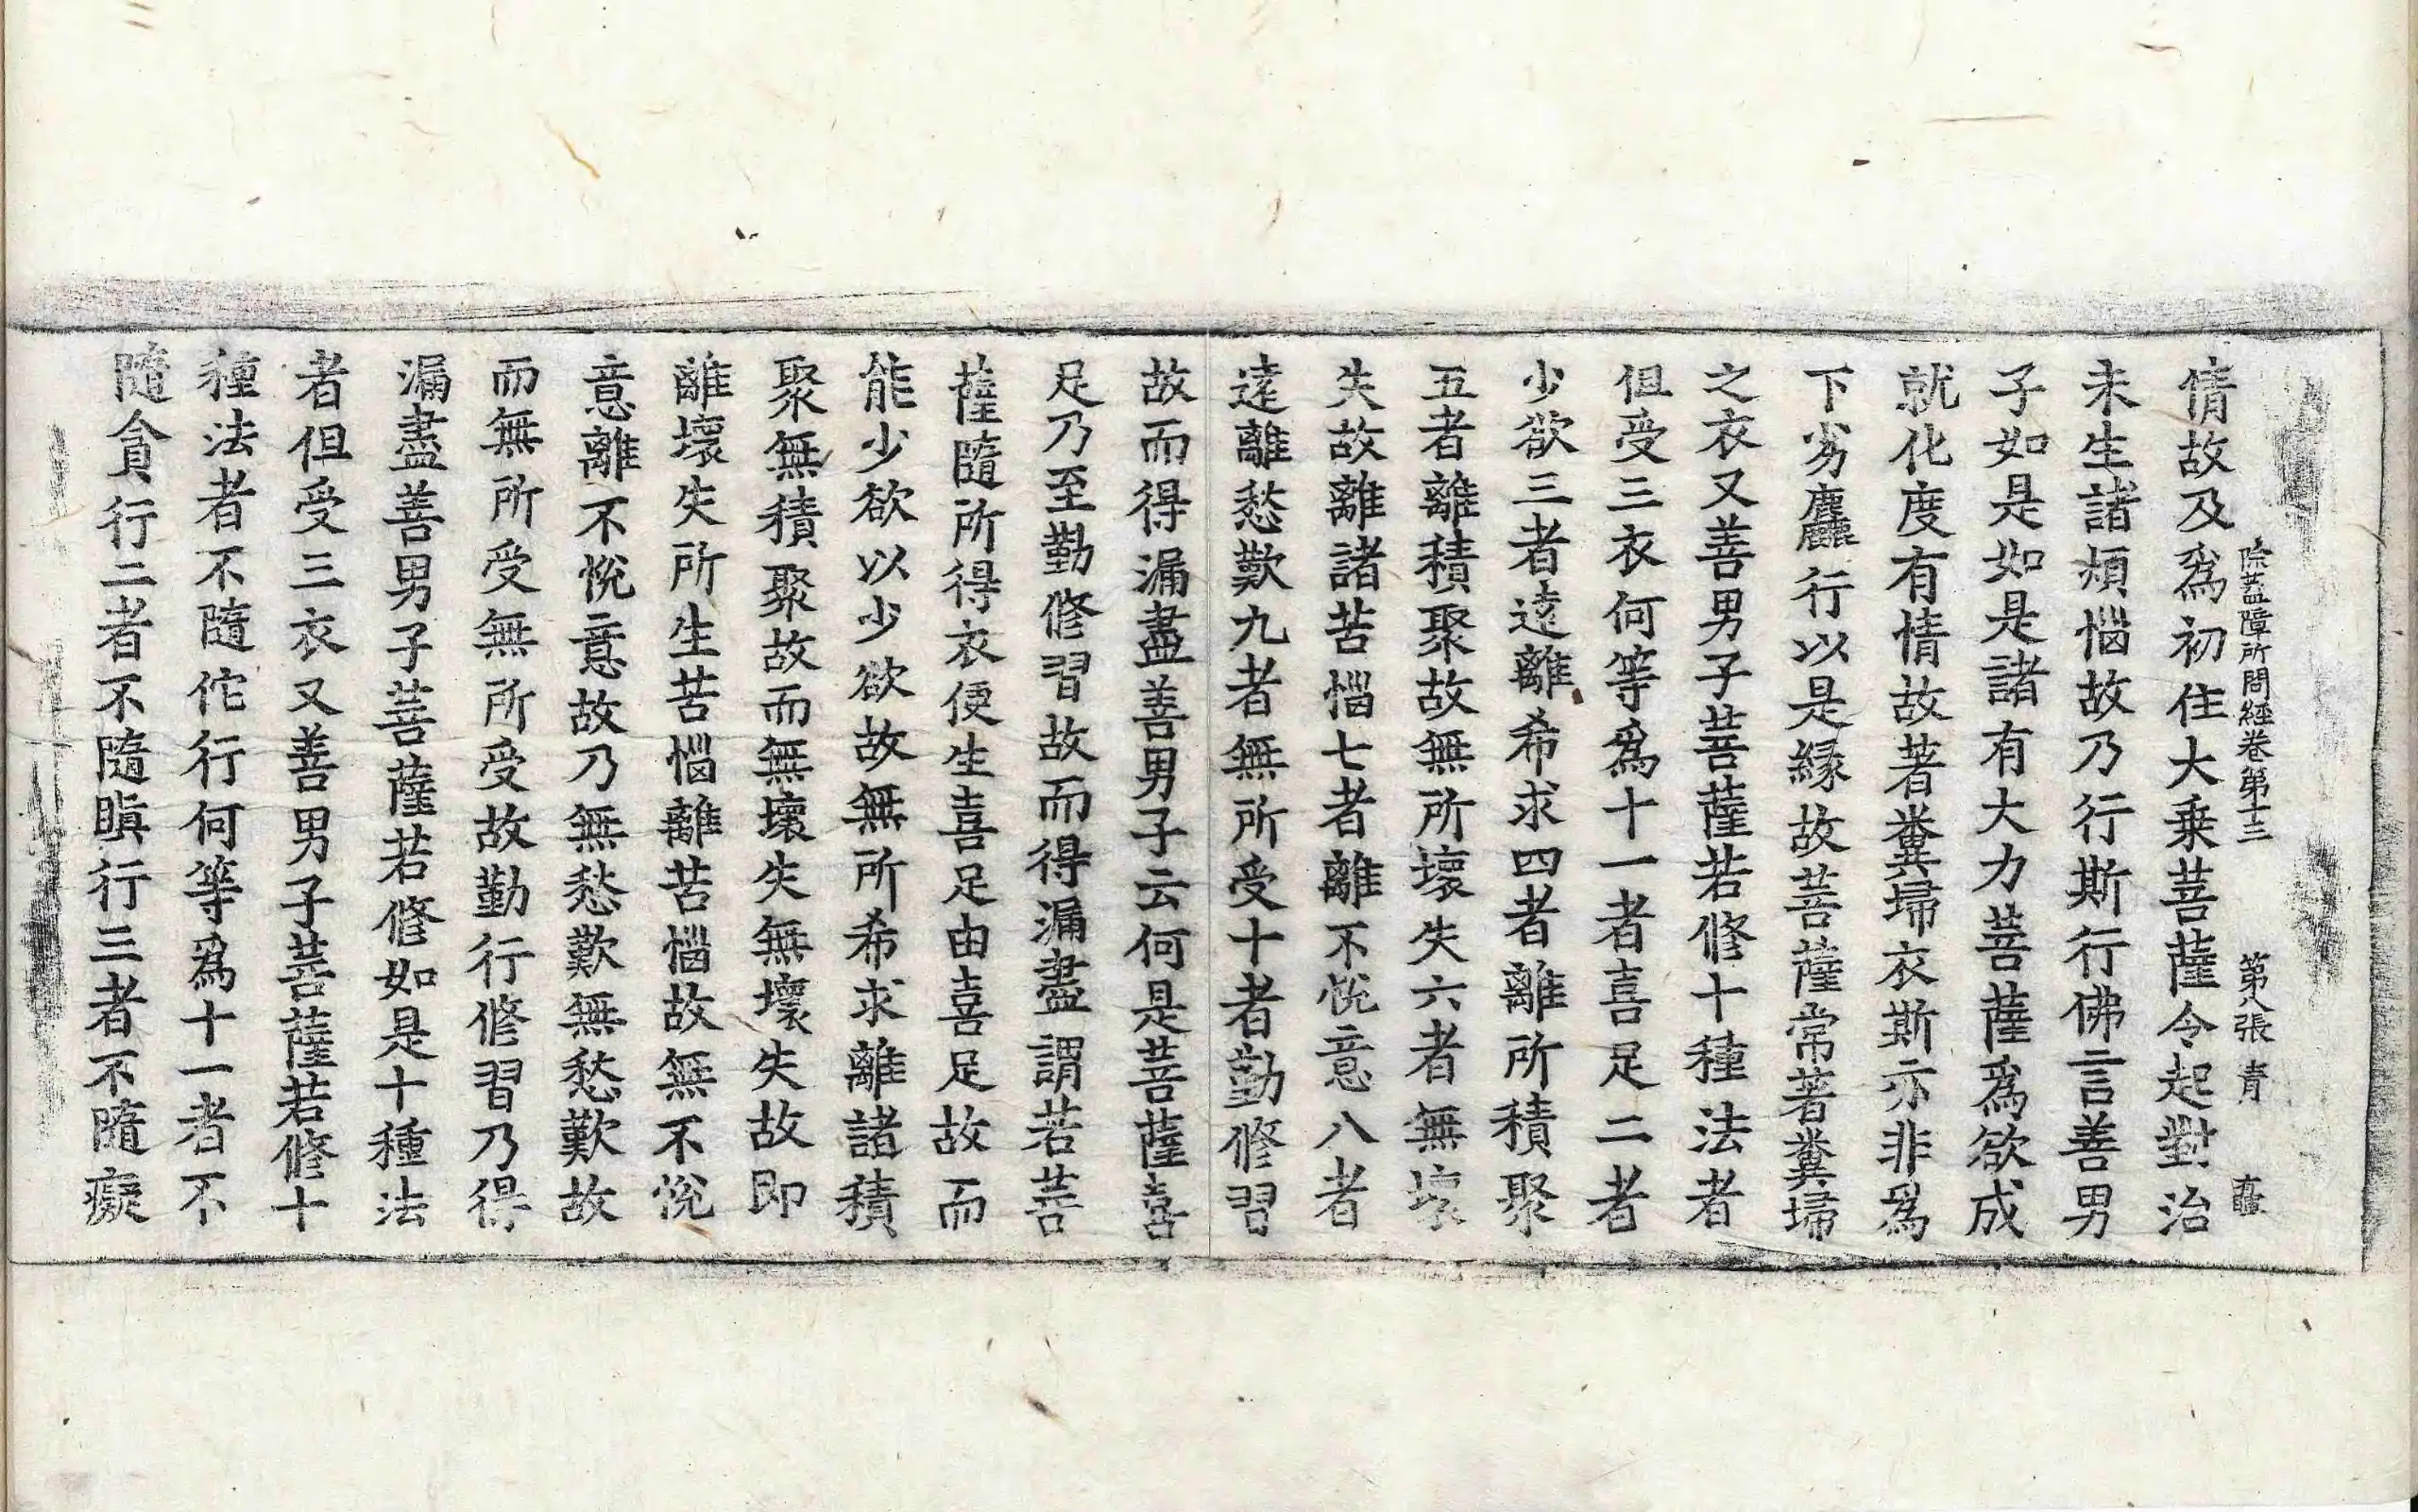 除蓋障所問經卷第十三 第八張 青
情故及爲初住大乗菩薩令起對治
未生諸煩惱故乃行斯行佛言善男
子如是如是諸有大力菩薩爲欲成
就化度有情故著糞掃衣斯亦非爲
下劣麤行以是緣故菩薩常著糞掃
之衣又善男子菩薩若修十種法者
但受三衣何等爲十一者喜足二者
少欲三者遠離希求四者離所積聚
五者離積聚故無所壞失六者無壞
失故離諸苦惱七者離不悅意八者
遠離愁歎九者無所受十者勤修習
故而得漏盡善男子云何是菩薩喜
足乃至勤修習故而得漏盡謂若菩
薩隨所得衣便生喜足由喜足故而
能少欲以少欲故無所希求離諸積
聚無積聚故而無壞失無壞失故即
離壞失所生苦惱離苦惱故無不悅
意離不悅意故乃無愁歎無愁歎故
而無所受無所受故勤行修習乃得
漏盡善男子菩薩若修如是十種法
者但受三衣又善男子菩薩若修十
種法者不隨佗行何等爲十一者不
隨貪行二者不隨瞋行三者不隨癡